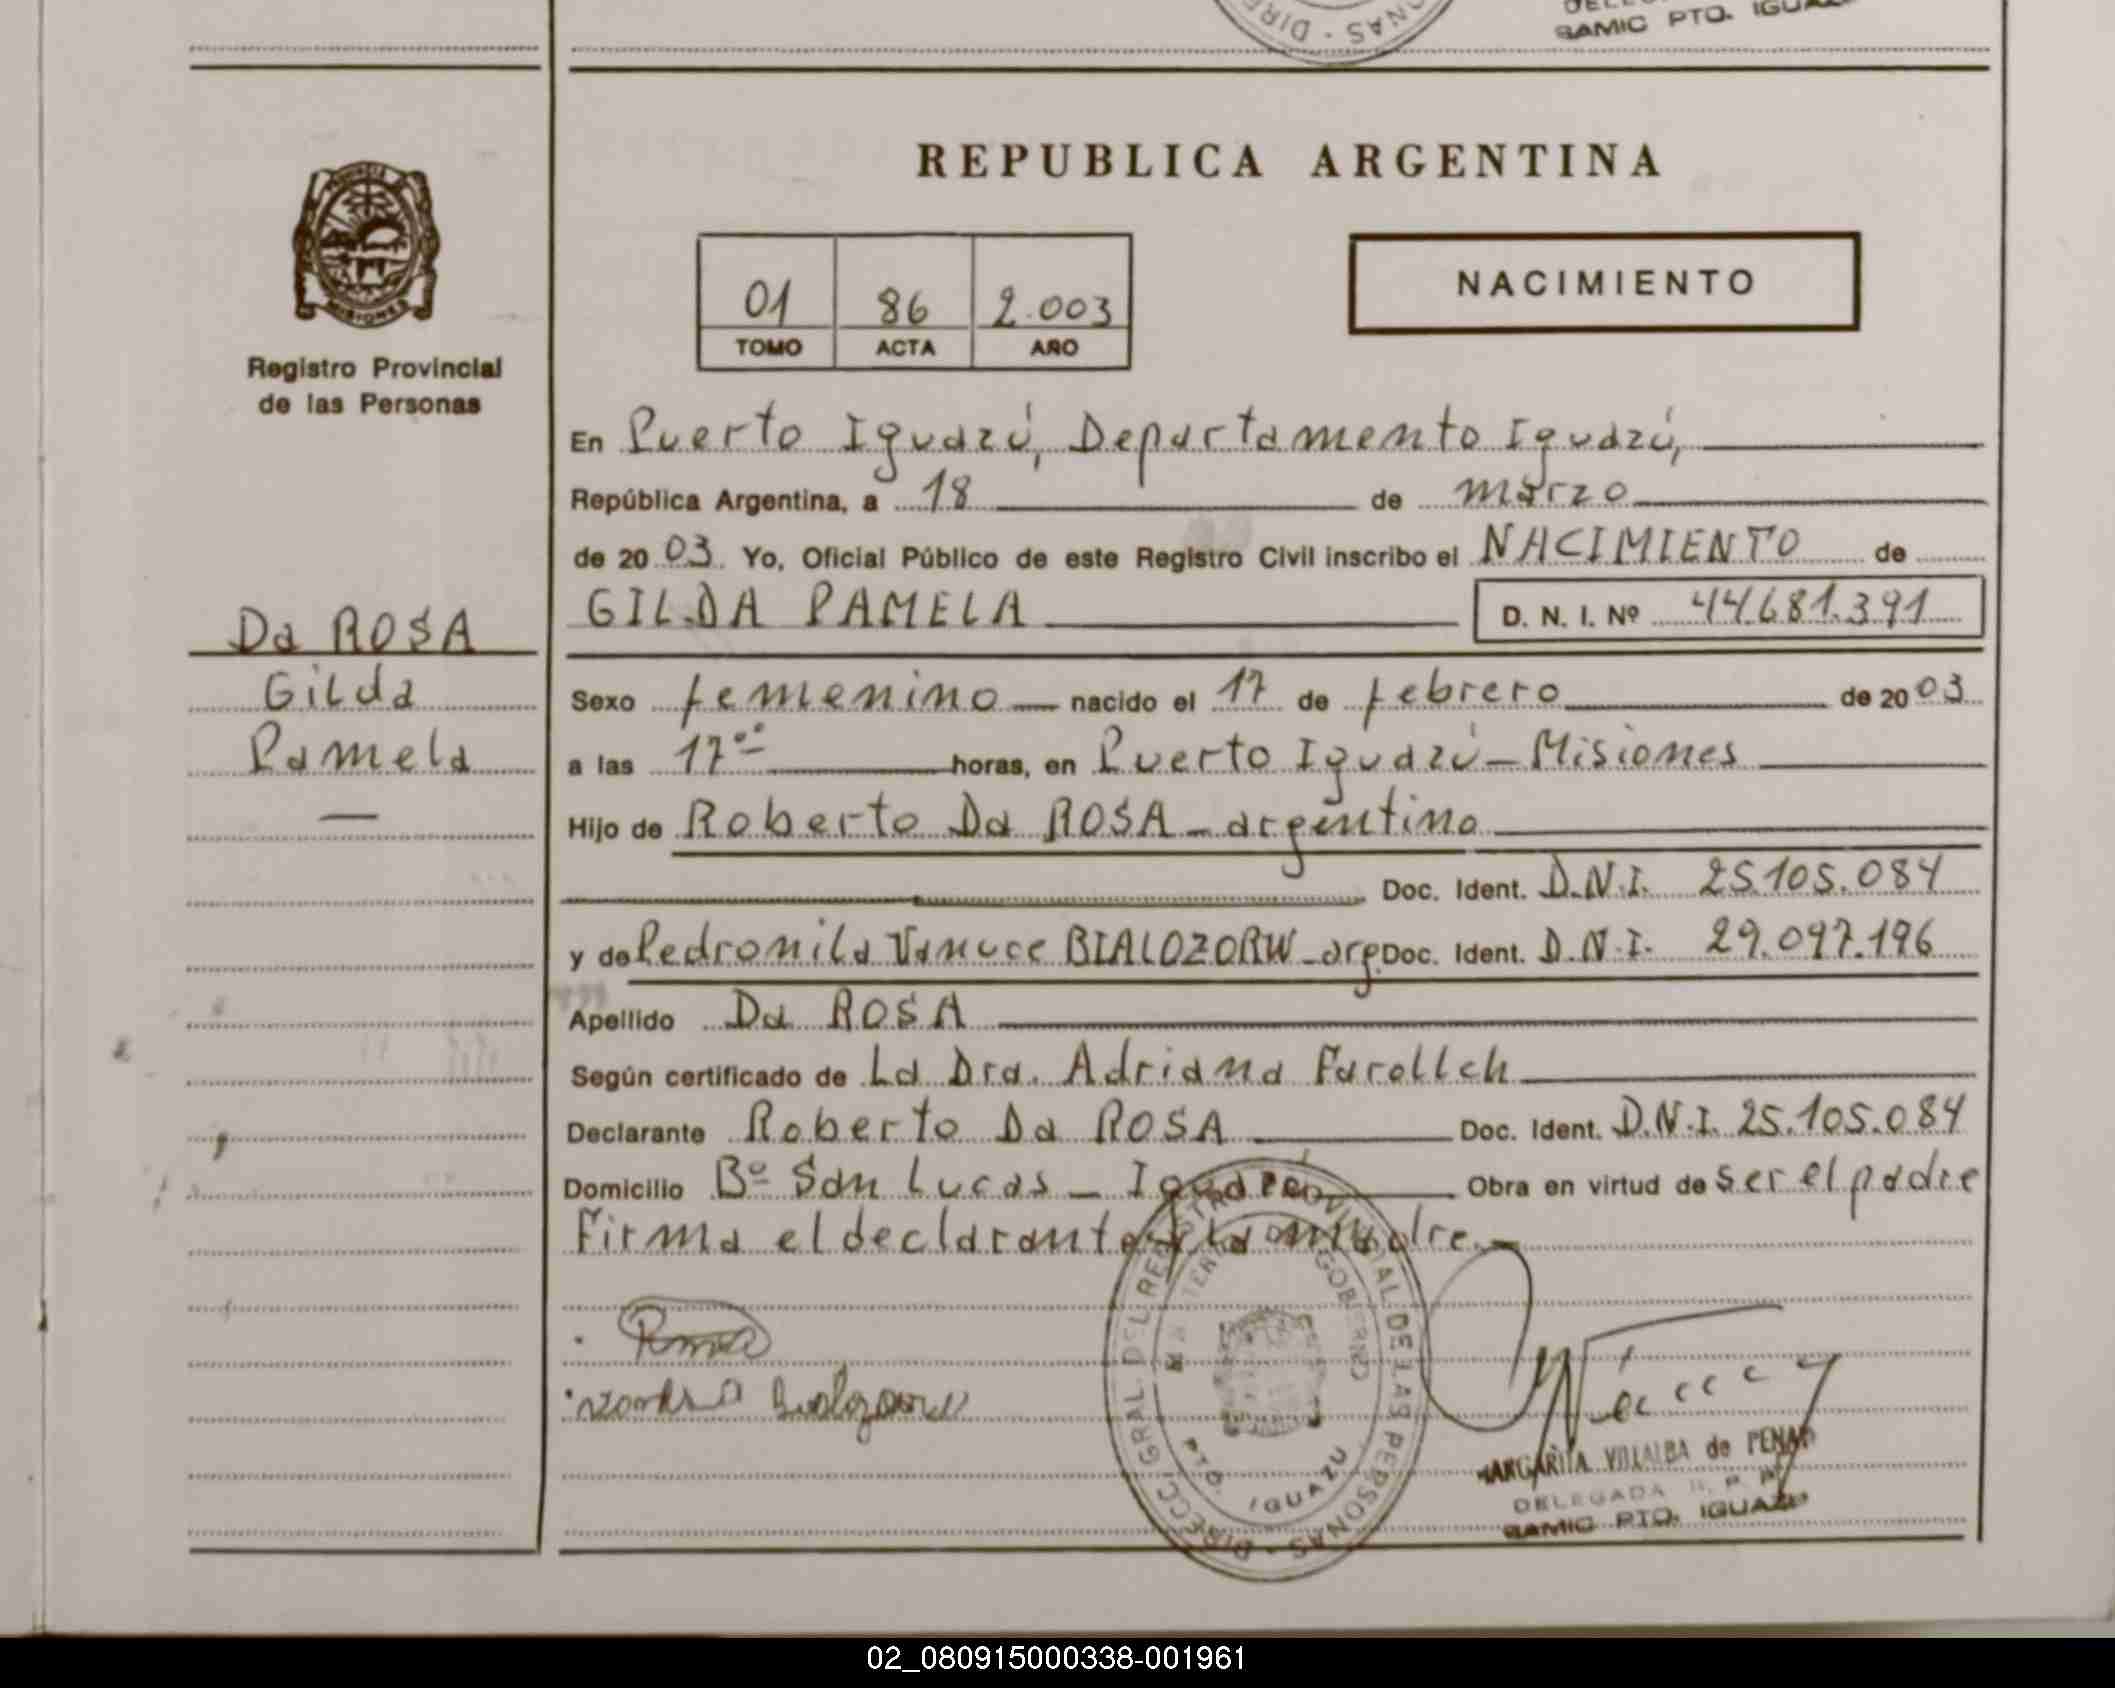 DIRE · ONAS
SAMIC PTO. IGUAZU
PROVINCIA DE
MISIONES
Registro Provincial
de las Personas
REPUBLICA ARGENTINA
01 86 2.003
TOMO ACTA AÑO
NACIMIENTO
En Puerto Iguazú, Departamento Iguazú,
República Argentina, a 18 de marzo
de 2003 Yo, Oficial Público de este Registro Civil inscribo el NACIMIENTO de
GILDA PAMELA D. N. I. Nº 44.681.391
Da ROSA
Gilda
Pamela
—
Sexo femenino nacido el 17 de febrero de 2003
a las 17ºº horas, en Puerto Iguazú - Misiones
Hijo de Roberto Da ROSA - argentino
Doc. Ident. D.N.I. 25.105.084
y de Pedronila Vanuce BIALOZORW - arg. Doc. Ident. D.N.I. 29.097.196
Apellido Da ROSA
Según certificado de La Dra. Adriana Farollch
Declarante Roberto Da ROSA Doc. Ident. D.N.I. 25.105.084
Domicilio Bº San Lucas - Iguazú Obra en virtud de ser el padre
Firma el declarante y la madre.
DIRECC. GRAL. DEL REGISTRO PROVINCIAL DE LAS PERSONAS
GOBIERNO
PTO. IGUAZU
MARGARITA VILLALBA de
DELEGADA
SAMIC PTO. IGUAZU
02_080915000338-001961